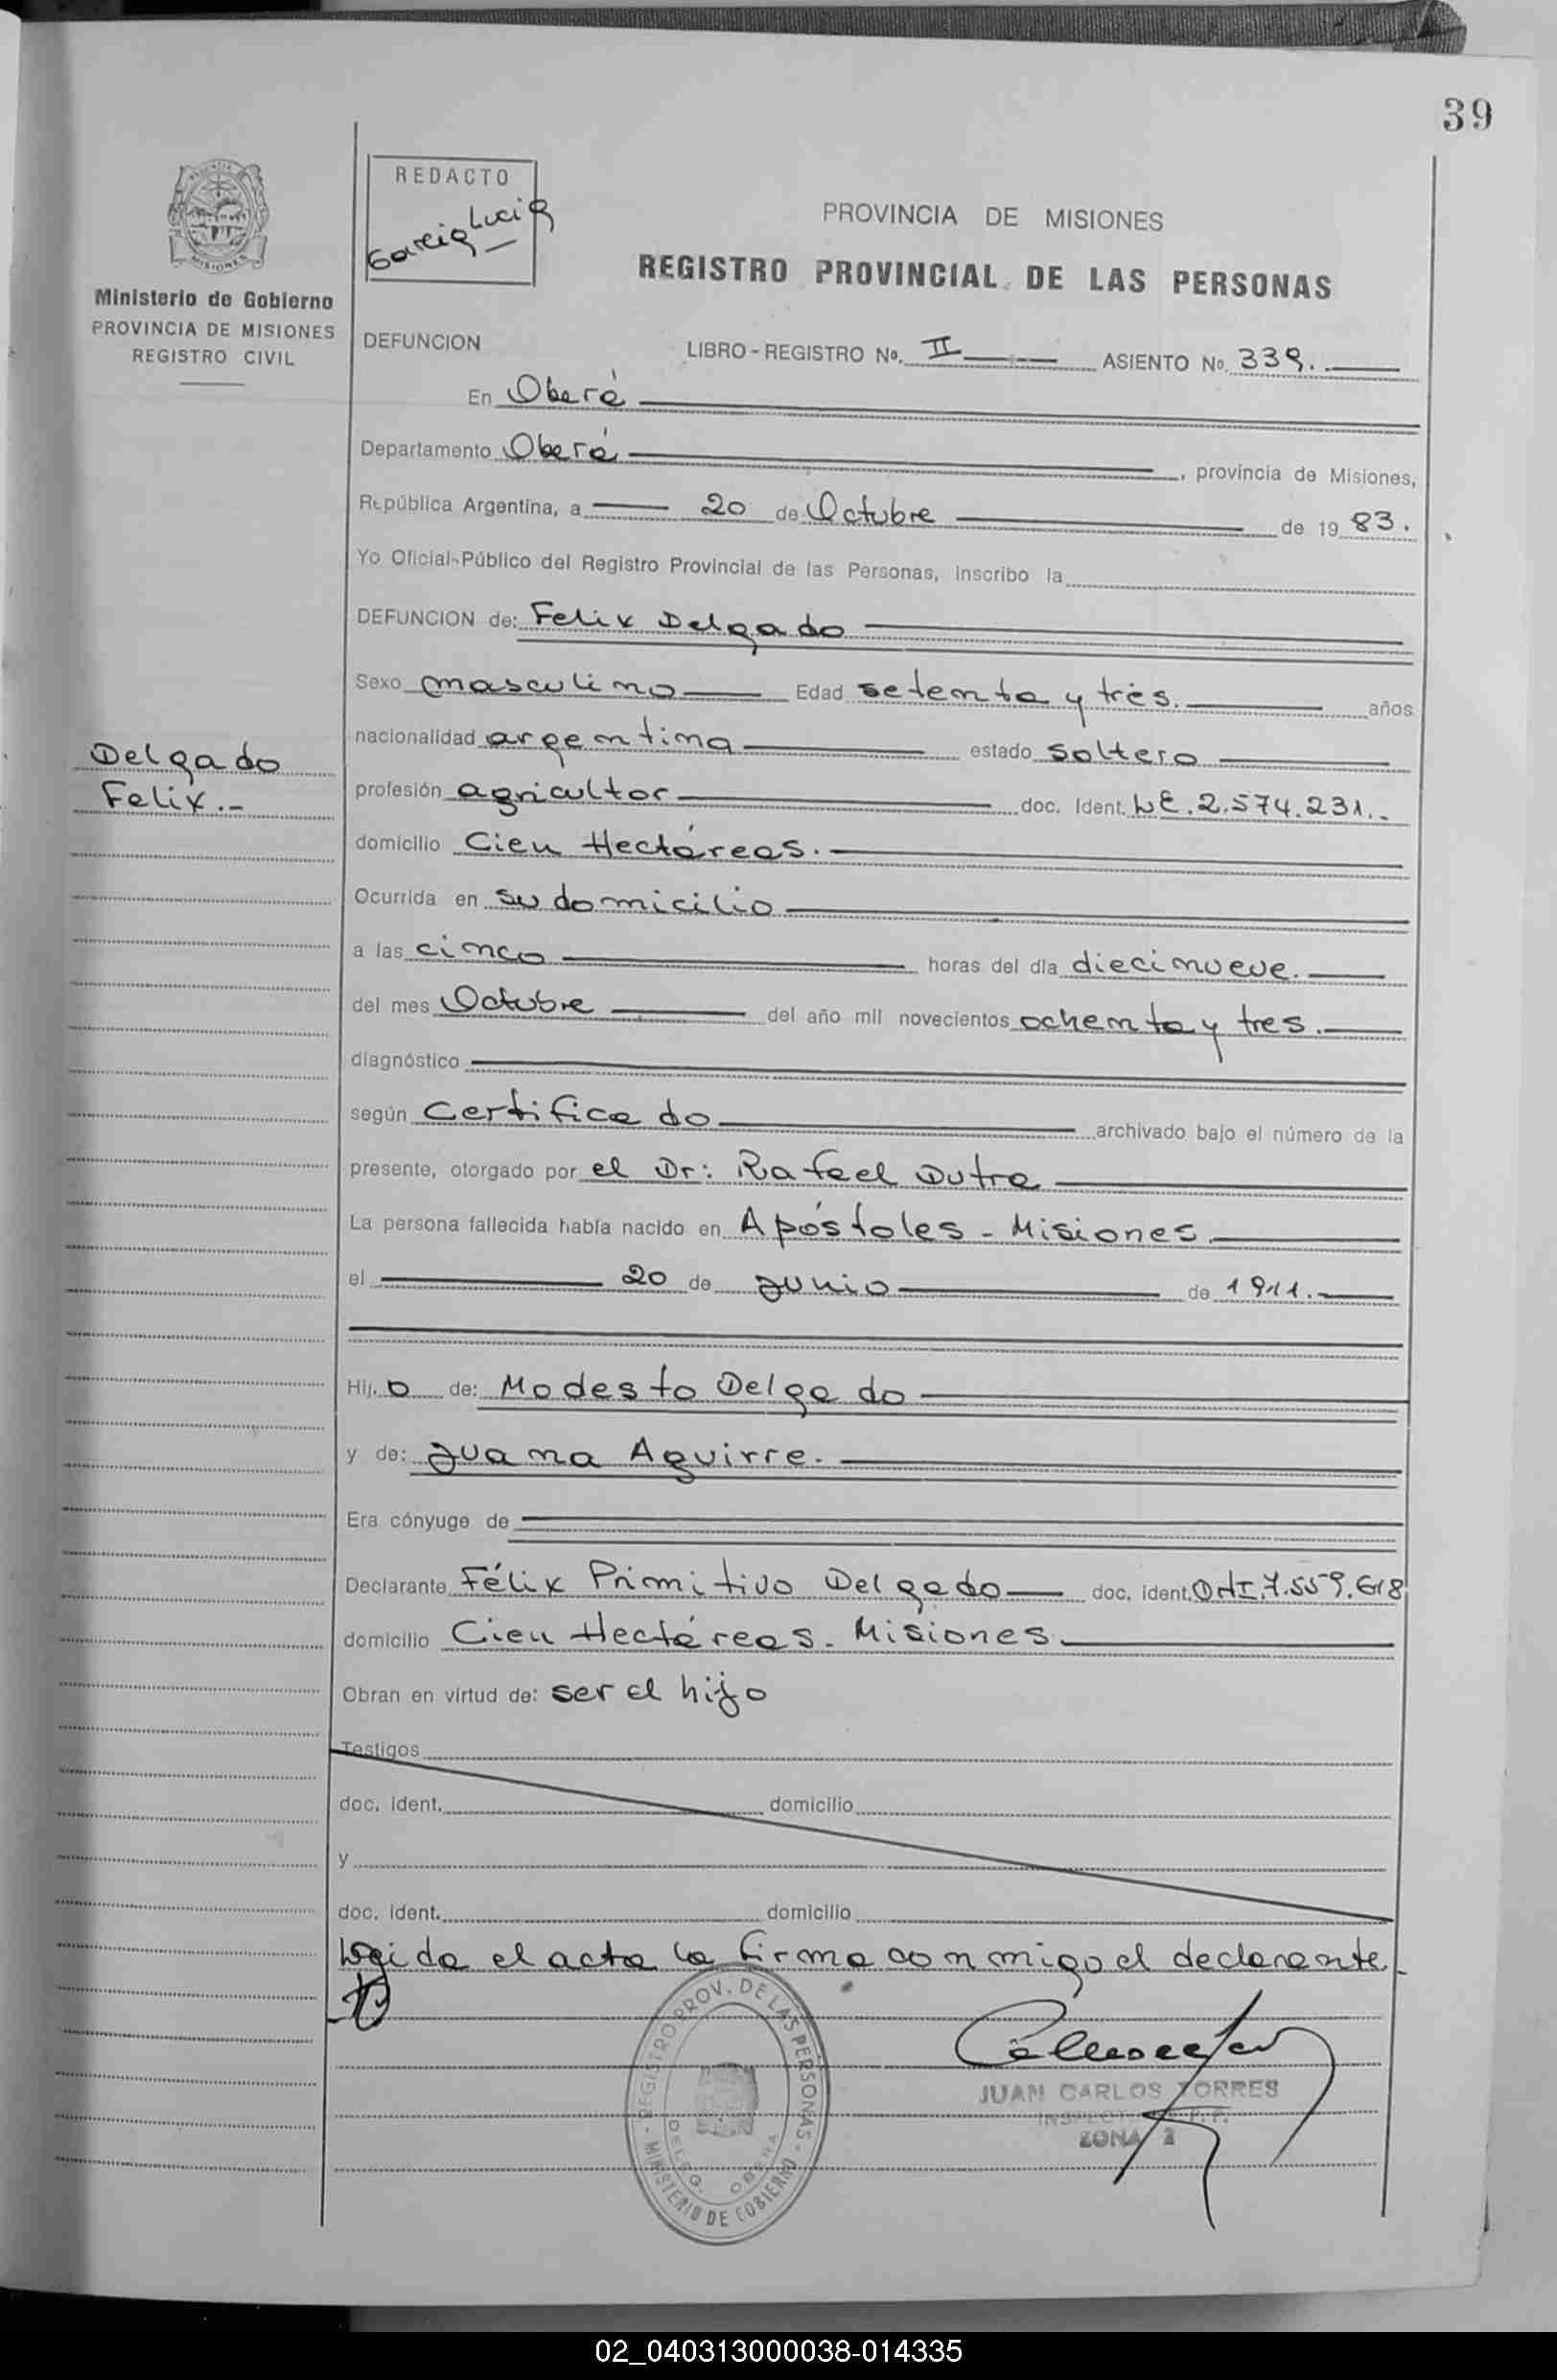 39
REDACTO
Garcia Lucia
PROVINCIA DE MISIONES
REGISTRO PROVINCIAL DE LAS PERSONAS
MISIONES
Ministerio de Gobierno
PROVINCIA DE MISIONES
REGISTRO CIVIL
DEFUNCION LIBRO - REGISTRO Nº. II ASIENTO Nº. 339.
En Oberá
Departamento Oberá, provincia de Misiones,
República Argentina, a 20 de Octubre de 1983.
Yo Oficial-Público del Registro Provincial de las Personas, inscribo la
DEFUNCION de: Felix Delgado
Sexo masculino Edad setenta y tres. años
nacionalidad argentina estado soltero
Delgado
Felix.-
profesión agricultor doc. Ident. L.E. 2.574.231.-
domicilio Cien Hectáreas.
Ocurrida en su domicilio
a las cinco horas del día diecinueve.
del mes Octubre del año mil novecientos ochenta y tres.
diagnóstico
según Certificado archivado bajo el número de la
presente, otorgado por el Dr: Rafael Dutra
La persona fallecida había nacido en Apóstoles - Misiones.
el 20 de Junio de 1911.
Hij. o de: Modesto Delgado
y de: Juana Aguirre.
Era cónyuge de
Declarante Félix Primitivo Delgado doc. ident. DNI. 7.559.618
domicilio Cien Hectáreas - Misiones.
Obran en virtud de: ser el hijo
Testigos
doc. ident. domicilio
y
doc. ident. domicilio
Leida el acta la firma conmigo el declarante.
REGISTRO PROV. DE LAS PERSONAS - MINISTERIO DE GOBIERNO -
DELEG. OBERA
JUAN CARLOS TORRES
ZONA 2
02_040313000038-014335